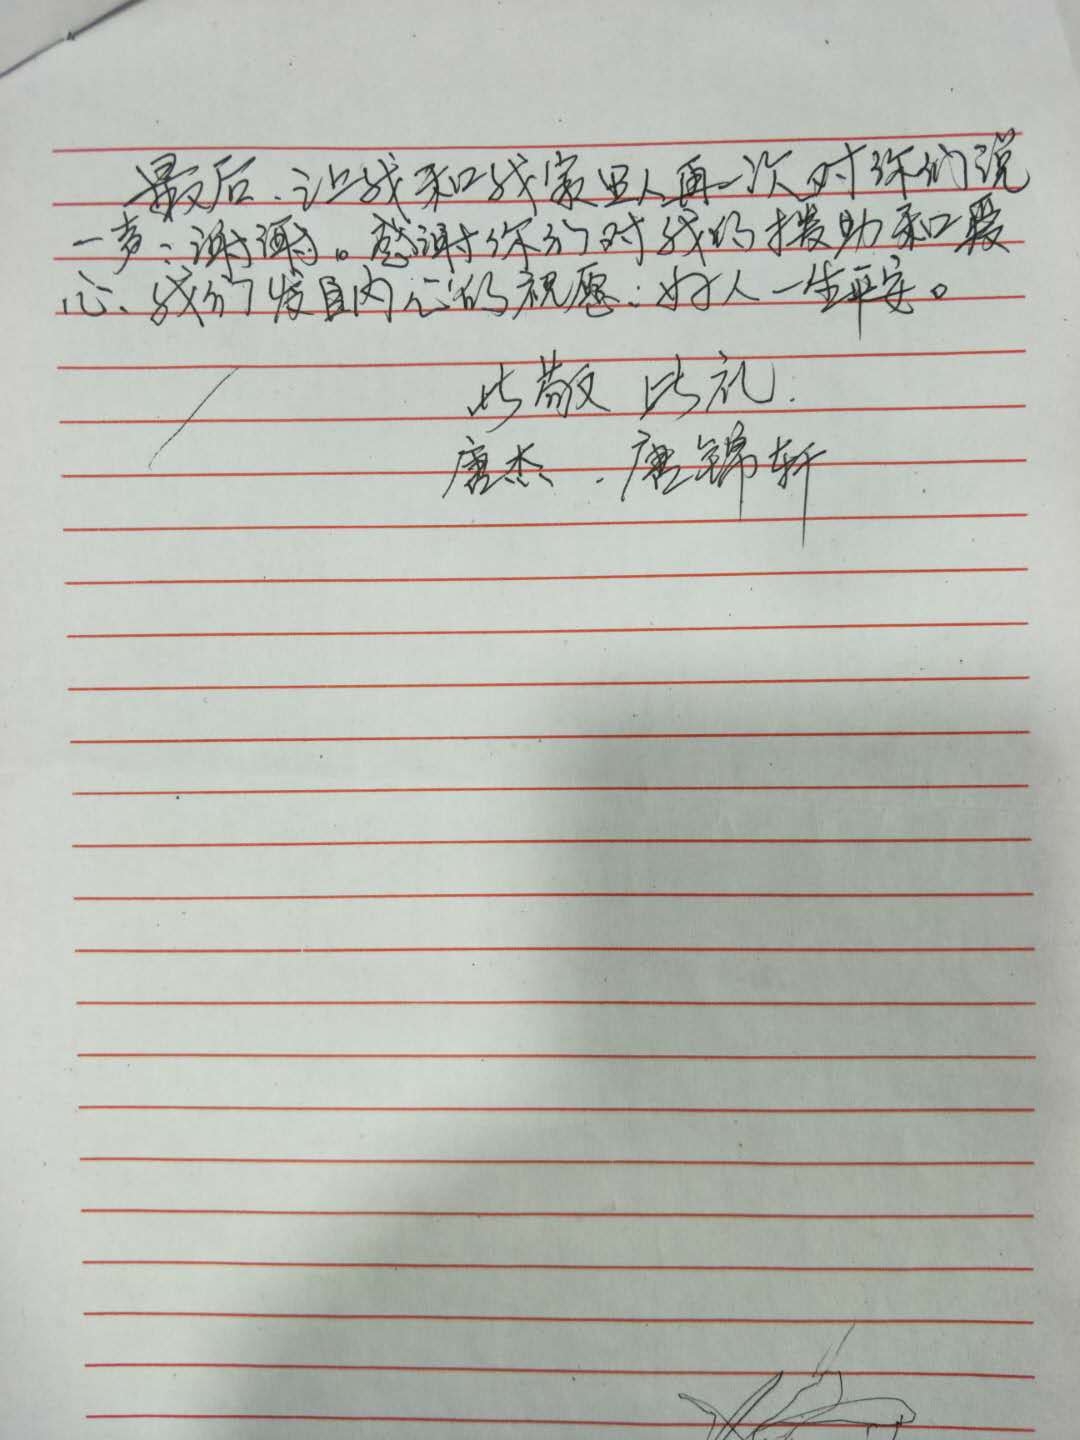 最后、让我和我家里人再一次对你们说
一声：谢谢。感谢你们对我的援助和爱
心、我们发自内心的祝愿：好人一生平安。
此敬 此礼.
唐杰 . 唐锦轩